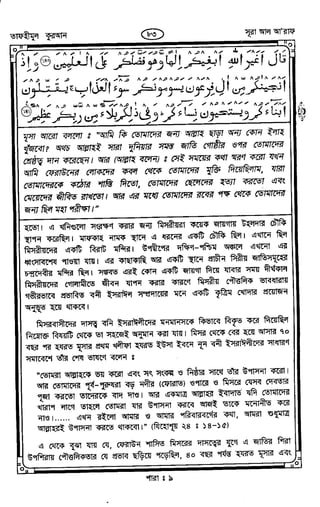 তাফহীমুল কুরআন ৮৩ সূরা আল আ'রাফ
قَالَ اَغَيْرَ اللهِ اَبْغِيْكُمْ اِلٰهًا وَّهُوَ فَضَّلَكُمْ عَلَى الْعٰلَمِيْنَ ۝ وَاِذْ
اَنْجَيْنٰكُمْ مِّنْ اٰلِ فِرْعَوْنَ يَسُوْمُوْنَكُمْ سُوْٓءَ الْعَذَابِ يُقَتِّلُوْنَ
اَبْنَآءَكُمْ وَيَسْتَحْيُوْنَ نِسَآءَكُمْ وَفِيْ ذٰلِكُمْ بَلَآءٌ مِّنْ رَّبِّكُمْ عَظِيْمٌ ۝
মূসা আরো বললো : "আমি কি তোমাদের জন্য আল্লাহ ছাড়া অন্য কোন ইলাহ
খুঁজবো? অথচ আল্লাহই সারা দুনিয়ার সমস্ত জাতি গোষ্ঠীর ওপর তোমাদের
শ্রেষ্ঠত্ব দান করেছেন। আর (আল্লাহ বলেন) : সেই সময়ের কথা স্মরণ করো যখন
আমি ফেরাউনের লোকদের কবল থেকে তোমাদের মুক্তি দিয়েছিলাম, যারা
তোমাদেরকে কঠোর শাস্তি দিতো, তোমাদের ছেলেদের হত্যা করতো এবং
মেয়েদের জীবিত রাখতো। আর এর মধ্যে তোমাদের রবের পক্ষ থেকে তোমাদের
জন্য ছিল মহা পরীক্ষা।"
হতো। এ খনিগুলো সংরক্ষণ করার জন্য মিসরীয়রা কয়েক জায়গায় টহলদার চৌকি
স্থাপন করেছিল। মাফকাহ নামক স্থানে এ ধরনের একটি চৌকি ছিল। এখানে ছিল
মিসরীয়দের একটি বিরাট মন্দির। উপদ্বীপের দক্ষিণ-পশ্চিম অঞ্চলে এখনো এর
ধ্বংসাবশেষ পাওয়া যায়। এর কাছাকাছি আর একটি স্থানে প্রাচীন সিরীয় জাতিসমূহের
চন্দ্রদেবীর মন্দির ছিল। সম্ভবত এরই কোন একটি জায়গা দিয়ে যাবার সময় দীর্ঘকাল
মিসরীয়দের গোলামীতে জীবন যাপন করার কারণে মিসরীয় পৌত্তলিক ভাবধারায়
গভীরভাবে প্রভাবিত বনী ইসরাঈল সম্প্রদায়ের মনে একটি কৃত্রিম খোদার প্রয়োজন
অনুভূত হয়ে থাকবে।
মিসরবাসীদের দাসত্ব বনি ইসরাঈলীদের মনমানসকে কিভাবে বিকৃত করে দিয়েছিল
নিম্নোক্ত বিষয়টি থেকে তা সহজেই অনুমান করা যায়। মিসর থেকে বের হয়ে আসার ৭০
বছর পর হযরত মূসার প্রথম খলীফা হযরত ইউসা ইবনে নূন বনী ইসরাঈলীদের সাধারণ
সমাবেশে তাঁর শেষ ভাষণে বলেন :
"তোমরা আল্লাহকে ভয় করো এবং সৎ সংকল্প ও নিষ্ঠার সাথে তাঁর উপাসনা করো।
আর তোমাদের পূর্ব-পুরুষরা বড় নদীর (ফোরাত) ওপারে ও মিসরে যেসব দেবতার
পূজা করতো তাদেরকে বাদ দাও। আর একমাত্র আল্লাহর ইবাদাত যদি তোমাদের
খারাপ লাগে তাহলে তোমরা যার উপাসনা করবে আজই তাকে মনোনীত করে
নাও।...... এখন রইলো আমার ও আমার পরিবারবর্গের কথা, আমরা শুধুমাত্র
আল্লাহরই উপাসনা করতে থাকবো।" (যিহোশূয় ২৪ : ১৪-১৫)
এ থেকে বুঝা যায় যে, ফেরাউন শাসিত মিসরের দাসত্বের যুগে এ জাতির শিরা
উপশিরায় পৌত্তলিকতার যে প্রভাব ছড়িয়ে পড়েছিল, ৪০ বছর পর্যন্ত হযরত মূসার এবং
পারা : ৯